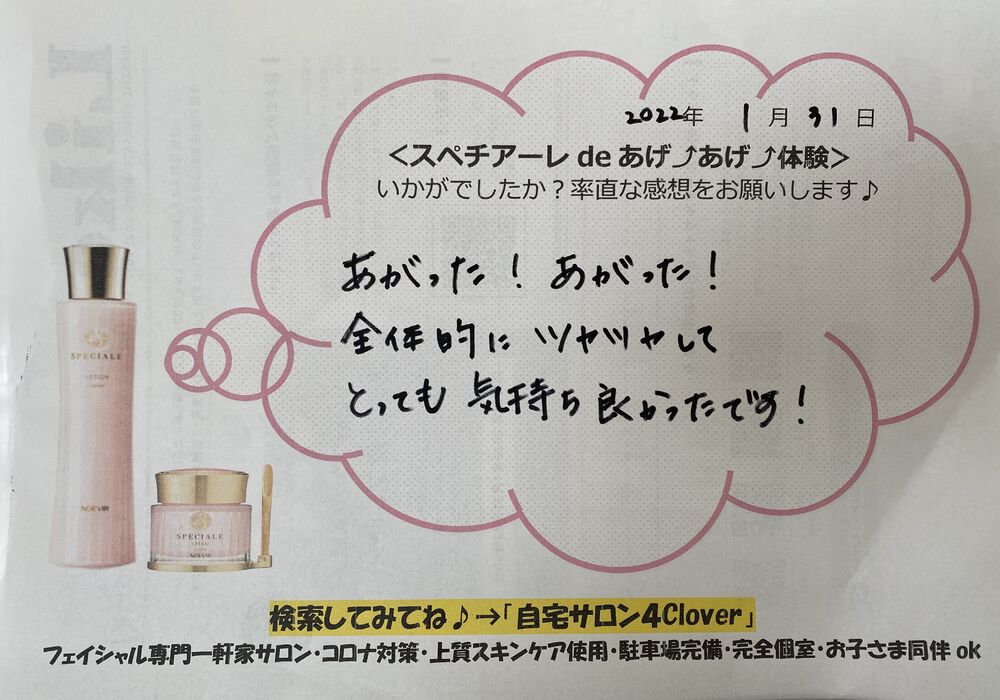 2022年 1月31日
<スペチアーレ de あげ⤴あげ⤴体験>
いかがでしたか？率直な感想をお願いします♪
あがった！あがった！
全体的に ツヤツヤして
とっても 気持ち良かったです！
SPECIALE
LOTION
NOEVIR
SPECIALE
CREAM
NOEVIR
検索してみてね♪→「自宅サロン4Clover」
フェイシャル専門一軒家サロン・コロナ対策・上質スキンケア使用・駐車場完備・完全個室・お子さま同伴 ok